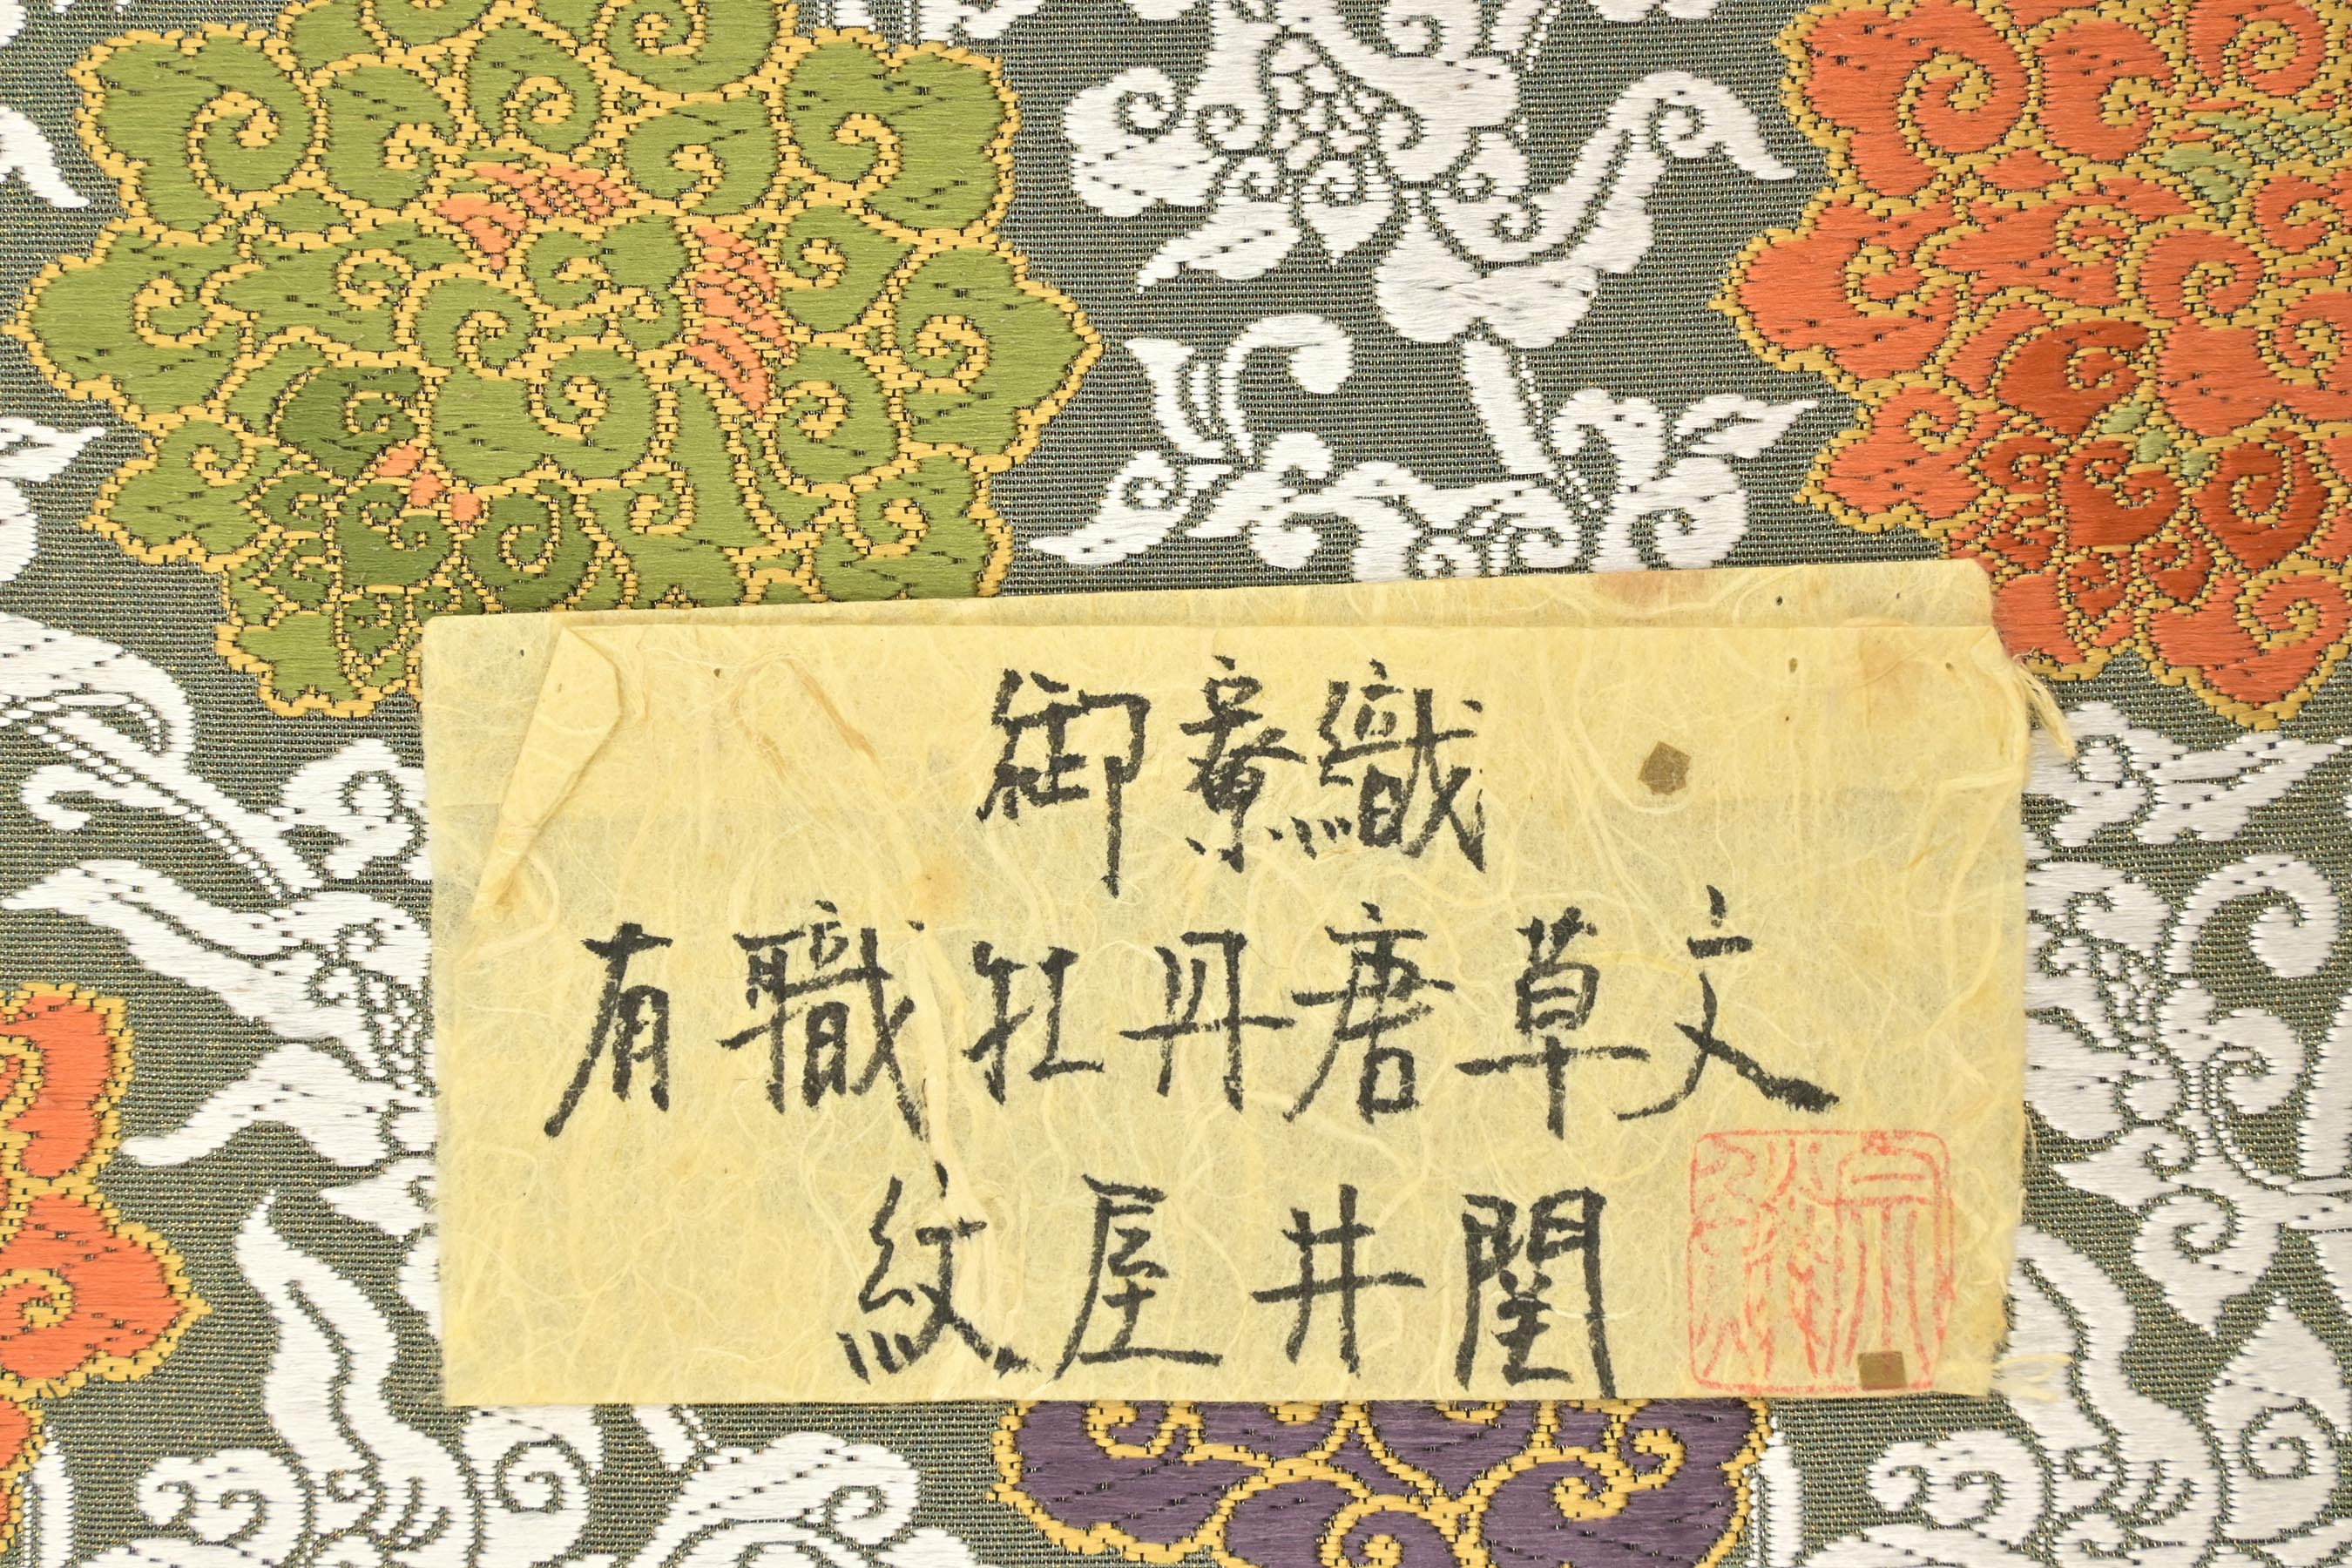 御寮織
有職牡丹唐草文
紋屋井関